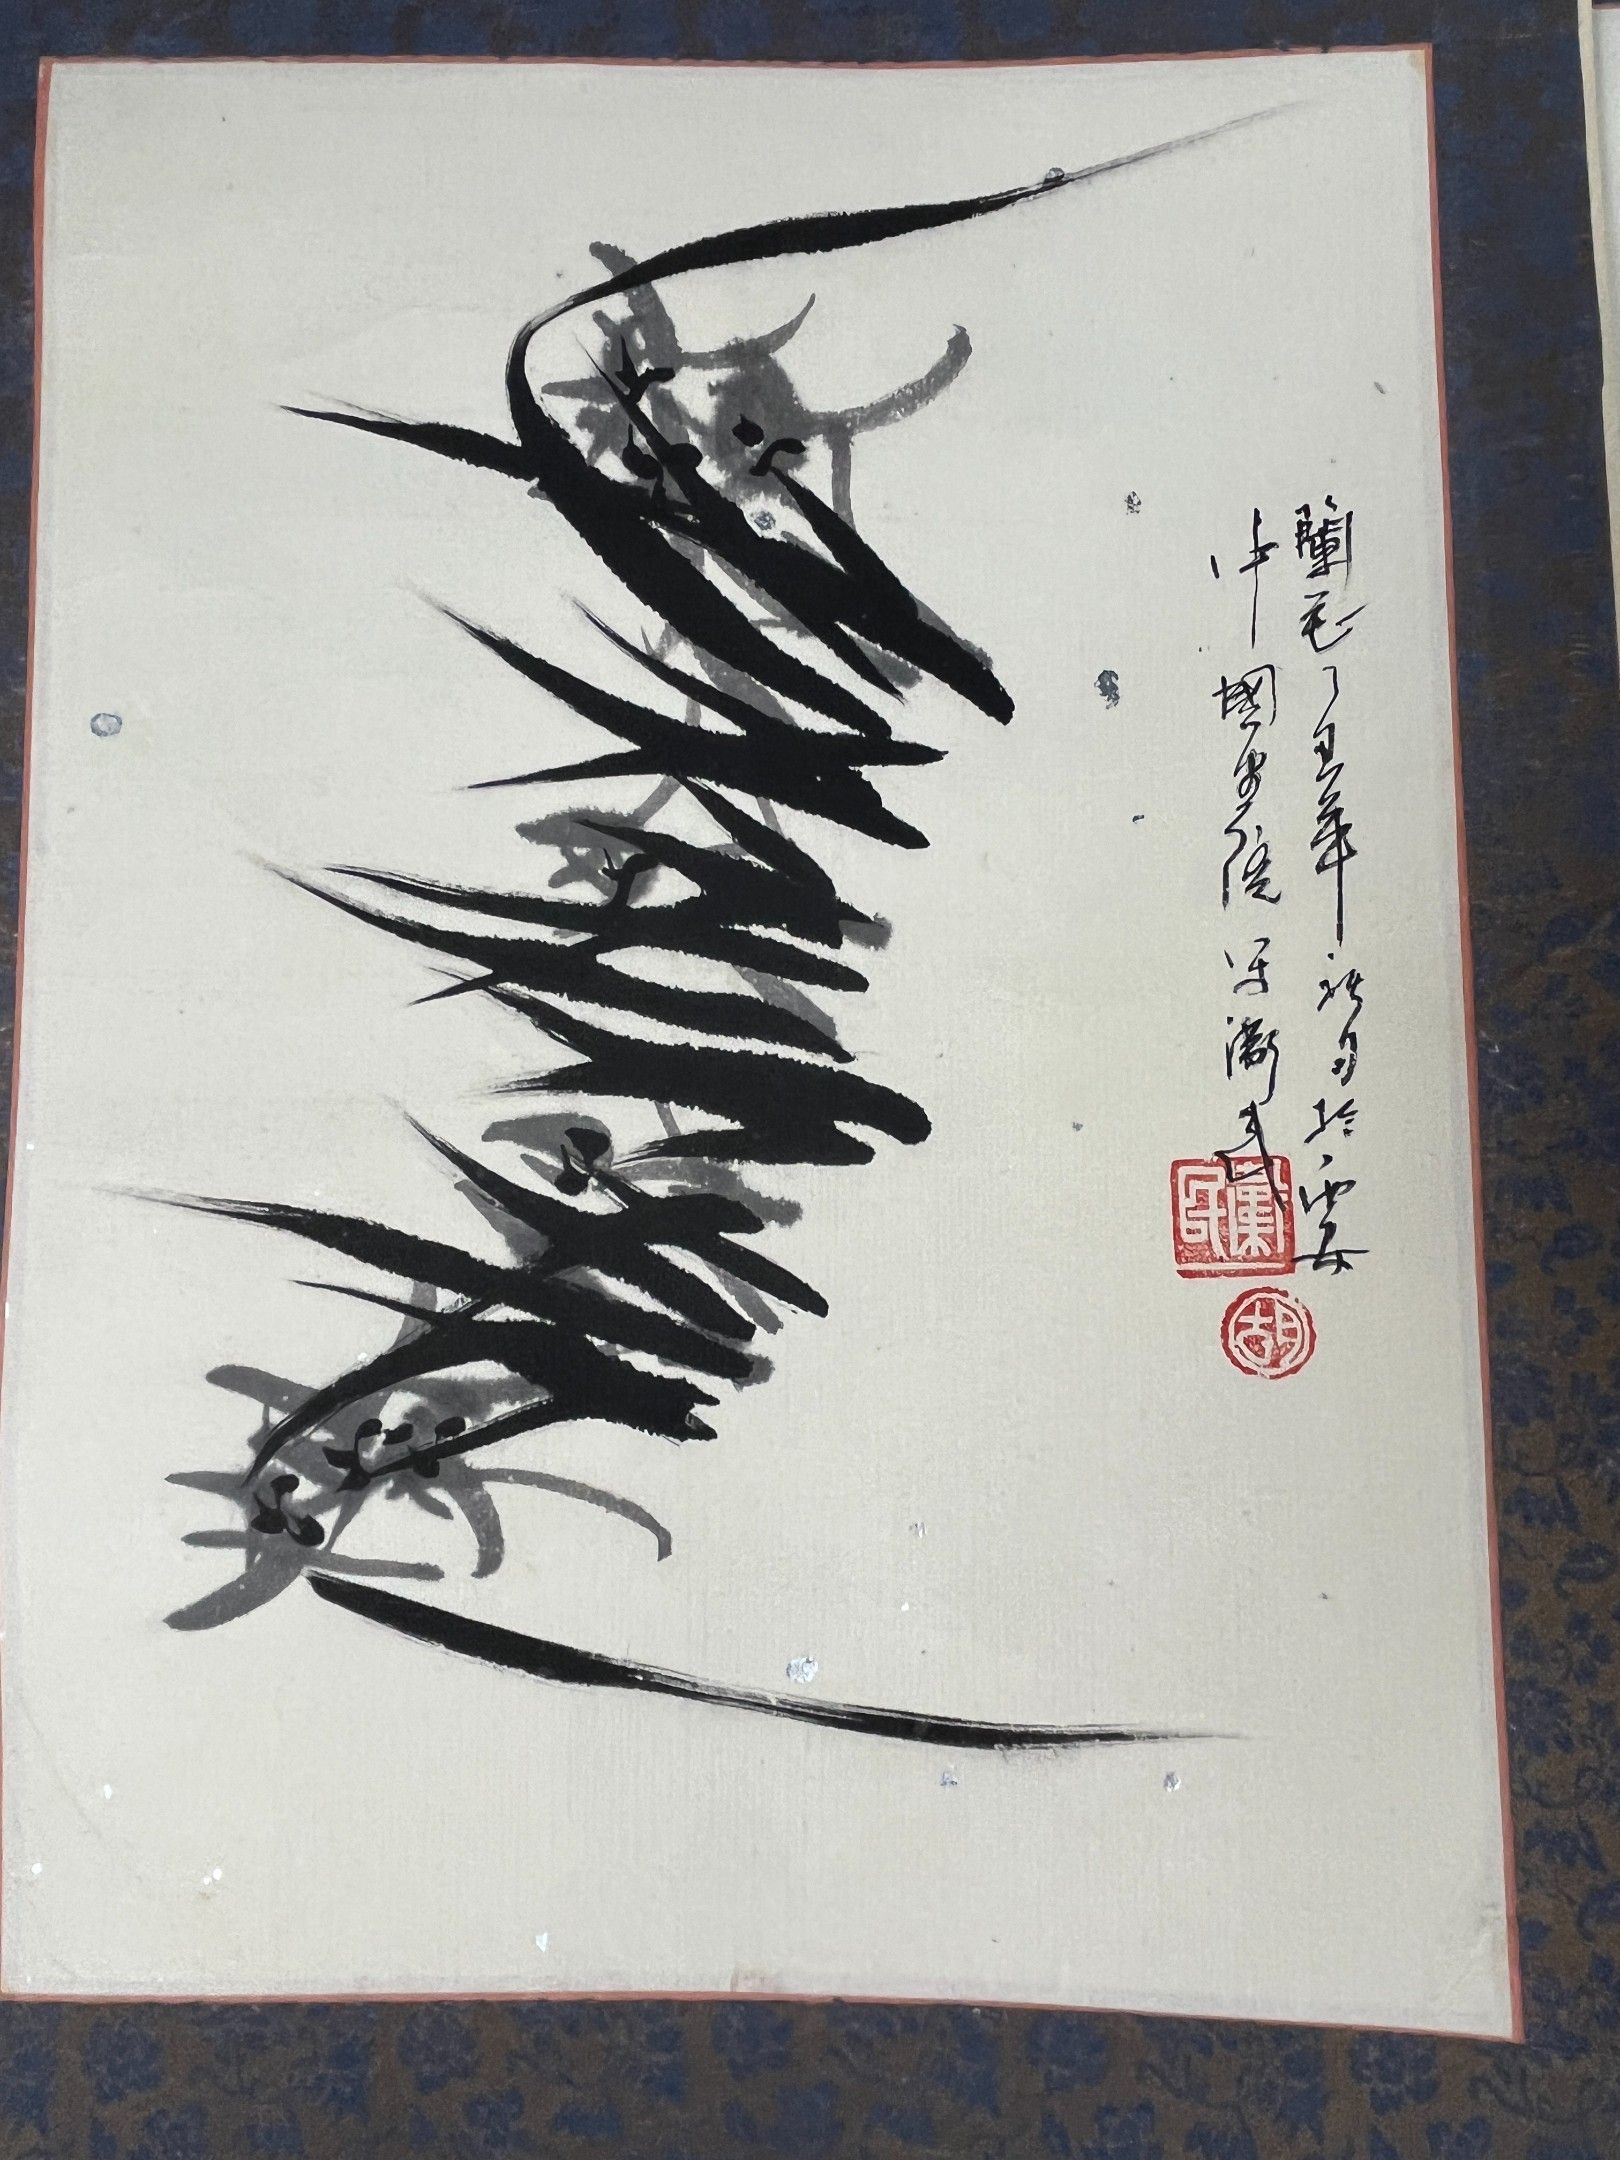 蘭花丁丑年秋月於西安
中國畫院 胡衛民
衛民
胡